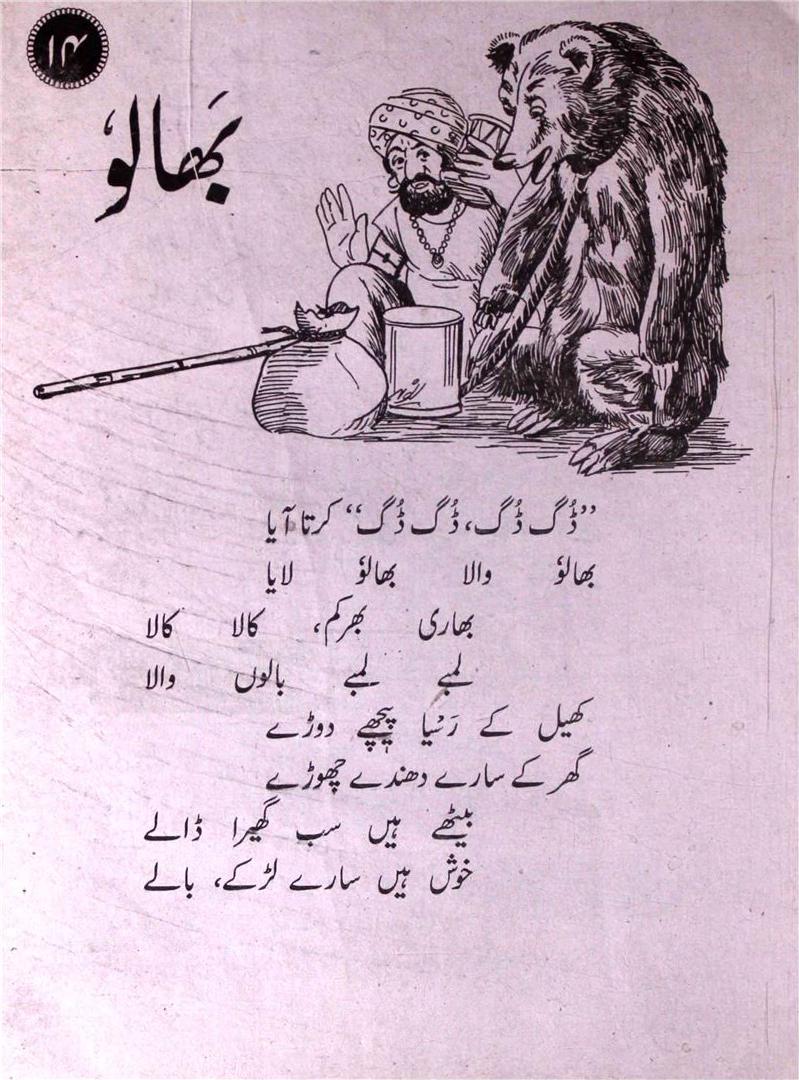 ۱۴
بَھالوٗ
”ڈُگ ڈُگ، ڈُگ ڈُگ“ کرتا آیا
بھالوٗ والا بھالوٗ لایا
بھاری بھرکم، کالا کالا
لمبے لمبے بالوں والا
کھیل کے رَسْیا پیچھے دوڑے
گھر کے سارے دھندے چھوڑے
بیٹھے ہیں سب گھیرا ڈالے
خوش ہیں سارے لڑکے، بالے